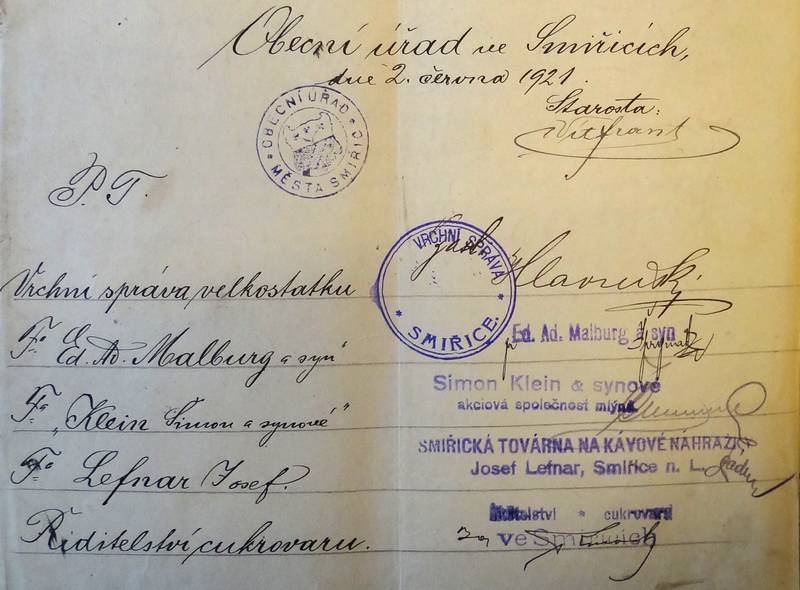 Obecní úřad ve Smiřicích,
dne 2. června 1921.
Starosta:
OBECNÍ ÚŘAD
MĚSTA SMIŘIC
P. T.
VRCHNÍ SPRÁVA
SMIŘICE.
Vrchní správa velkostatku
Fa Ed. Ad. Malburg a syn
Ed. Ad. Malburg a syn
Fa „Klein Šimon a synové"
Simon Klein & synové
akciová společnost mlýna
Fa Lefnar Josef.
SMIŘICKÁ TOVÁRNA NA KÁVOVÉ NÁHRAŽKY
Josef Lefnar, Smiřice n. L.
Ředitelství cukrovaru.
cukrovaru
ve Smiřicích